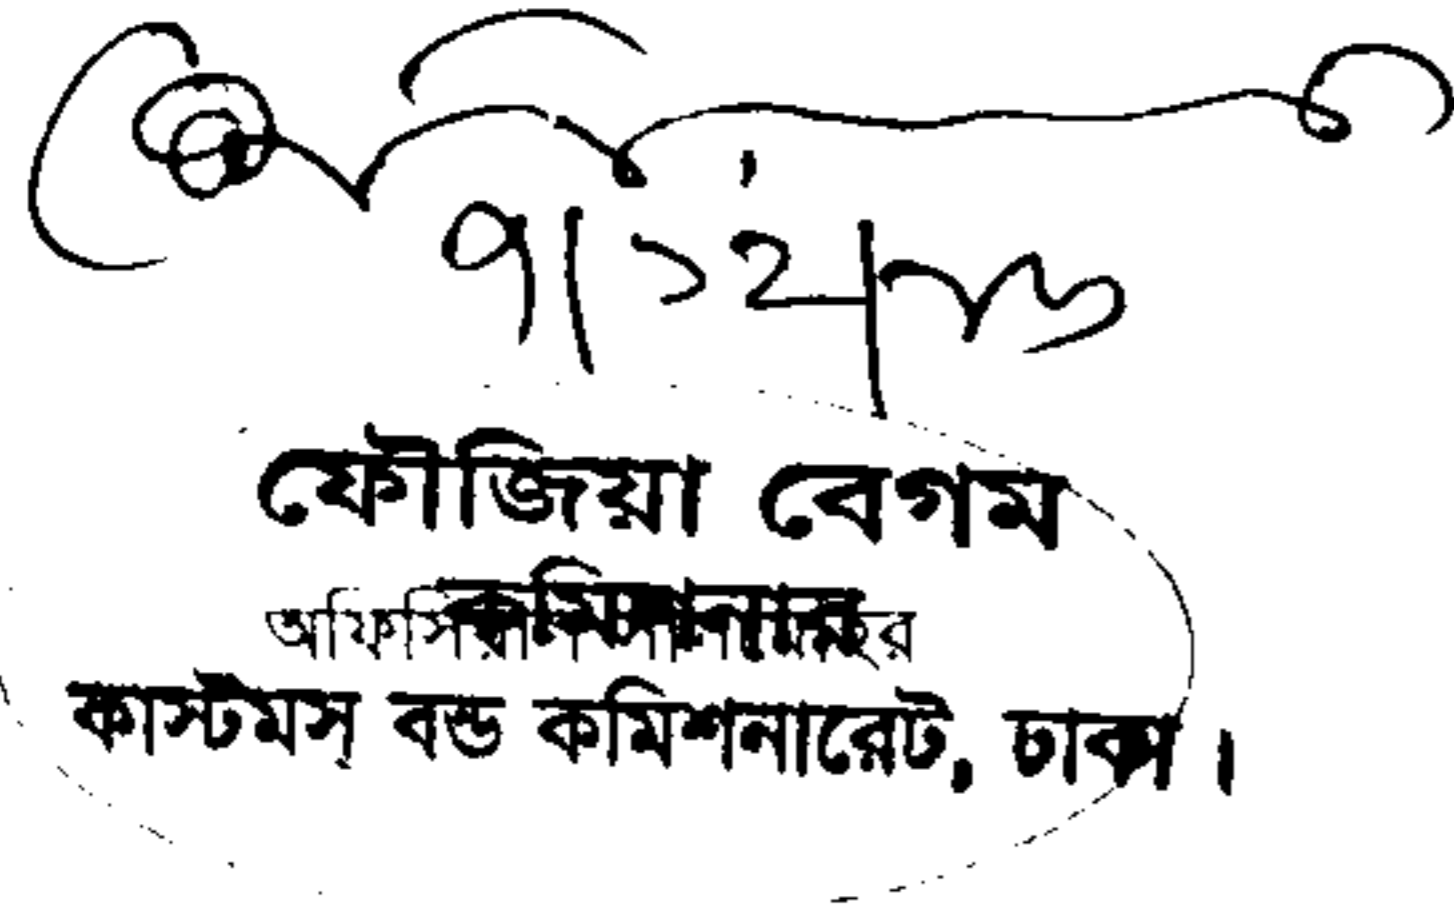 ৭/১২/
ফৌজিয়া বেগম
কমিশনার
অফিসিয়াল
কাস্টমস্ বন্ড কমিশনারেট, ঢাকা।